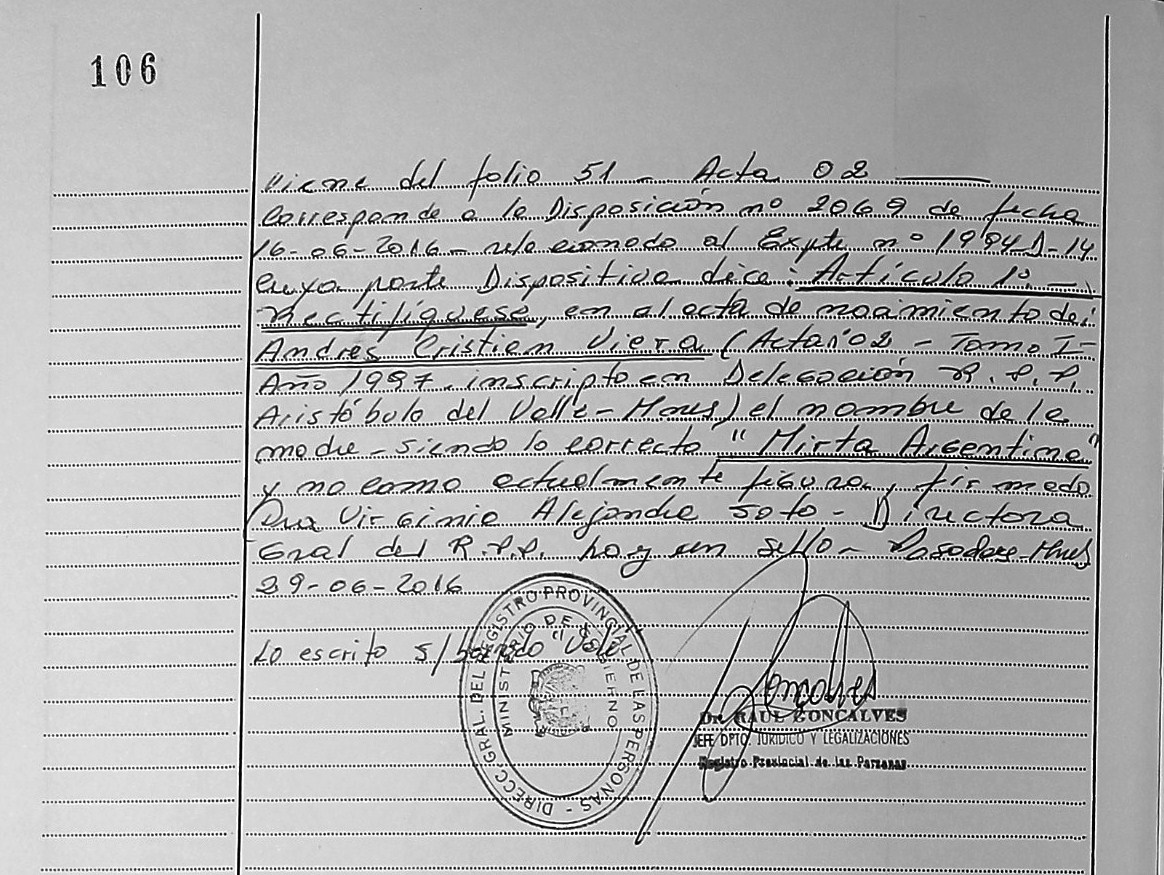 106
Viene del folio 51 - Acta 02
Corresponde a la Disposición nº 2069 de fecha
16-06-2016 - relacionado al Expte nº 1994-D-14
cuya parte Dispositiva dice: Artículo 1º. -
Rectifíquese, en el acta de nacimiento de:
Andrés Cristian Viera (Acta: 02 - Tomo I -
Año 1997. inscripto en Delegación R.P.P.
Aristóbulo del Valle - Mnes) el nombre de la
madre - siendo lo correcto "Mirta Argentina"
y no como actualmente figura, firmado
Dra Virginia Alejandra Soto - Directora
Gral del R.P.P. hay un sello - Posadas - Mnes
29-06-2016
Lo escrito s/borrado "Vale"
DIRECC GRAL. DEL REGISTRO PROVINCIAL DE LAS PERSONAS -
MINISTERIO DE GOBIERNO
Goncalves
Dr. RAUL GONCALVES
JEFE DPTO. JURIDICO Y LEGALIZACIONES
Registro Provincial de las Personas